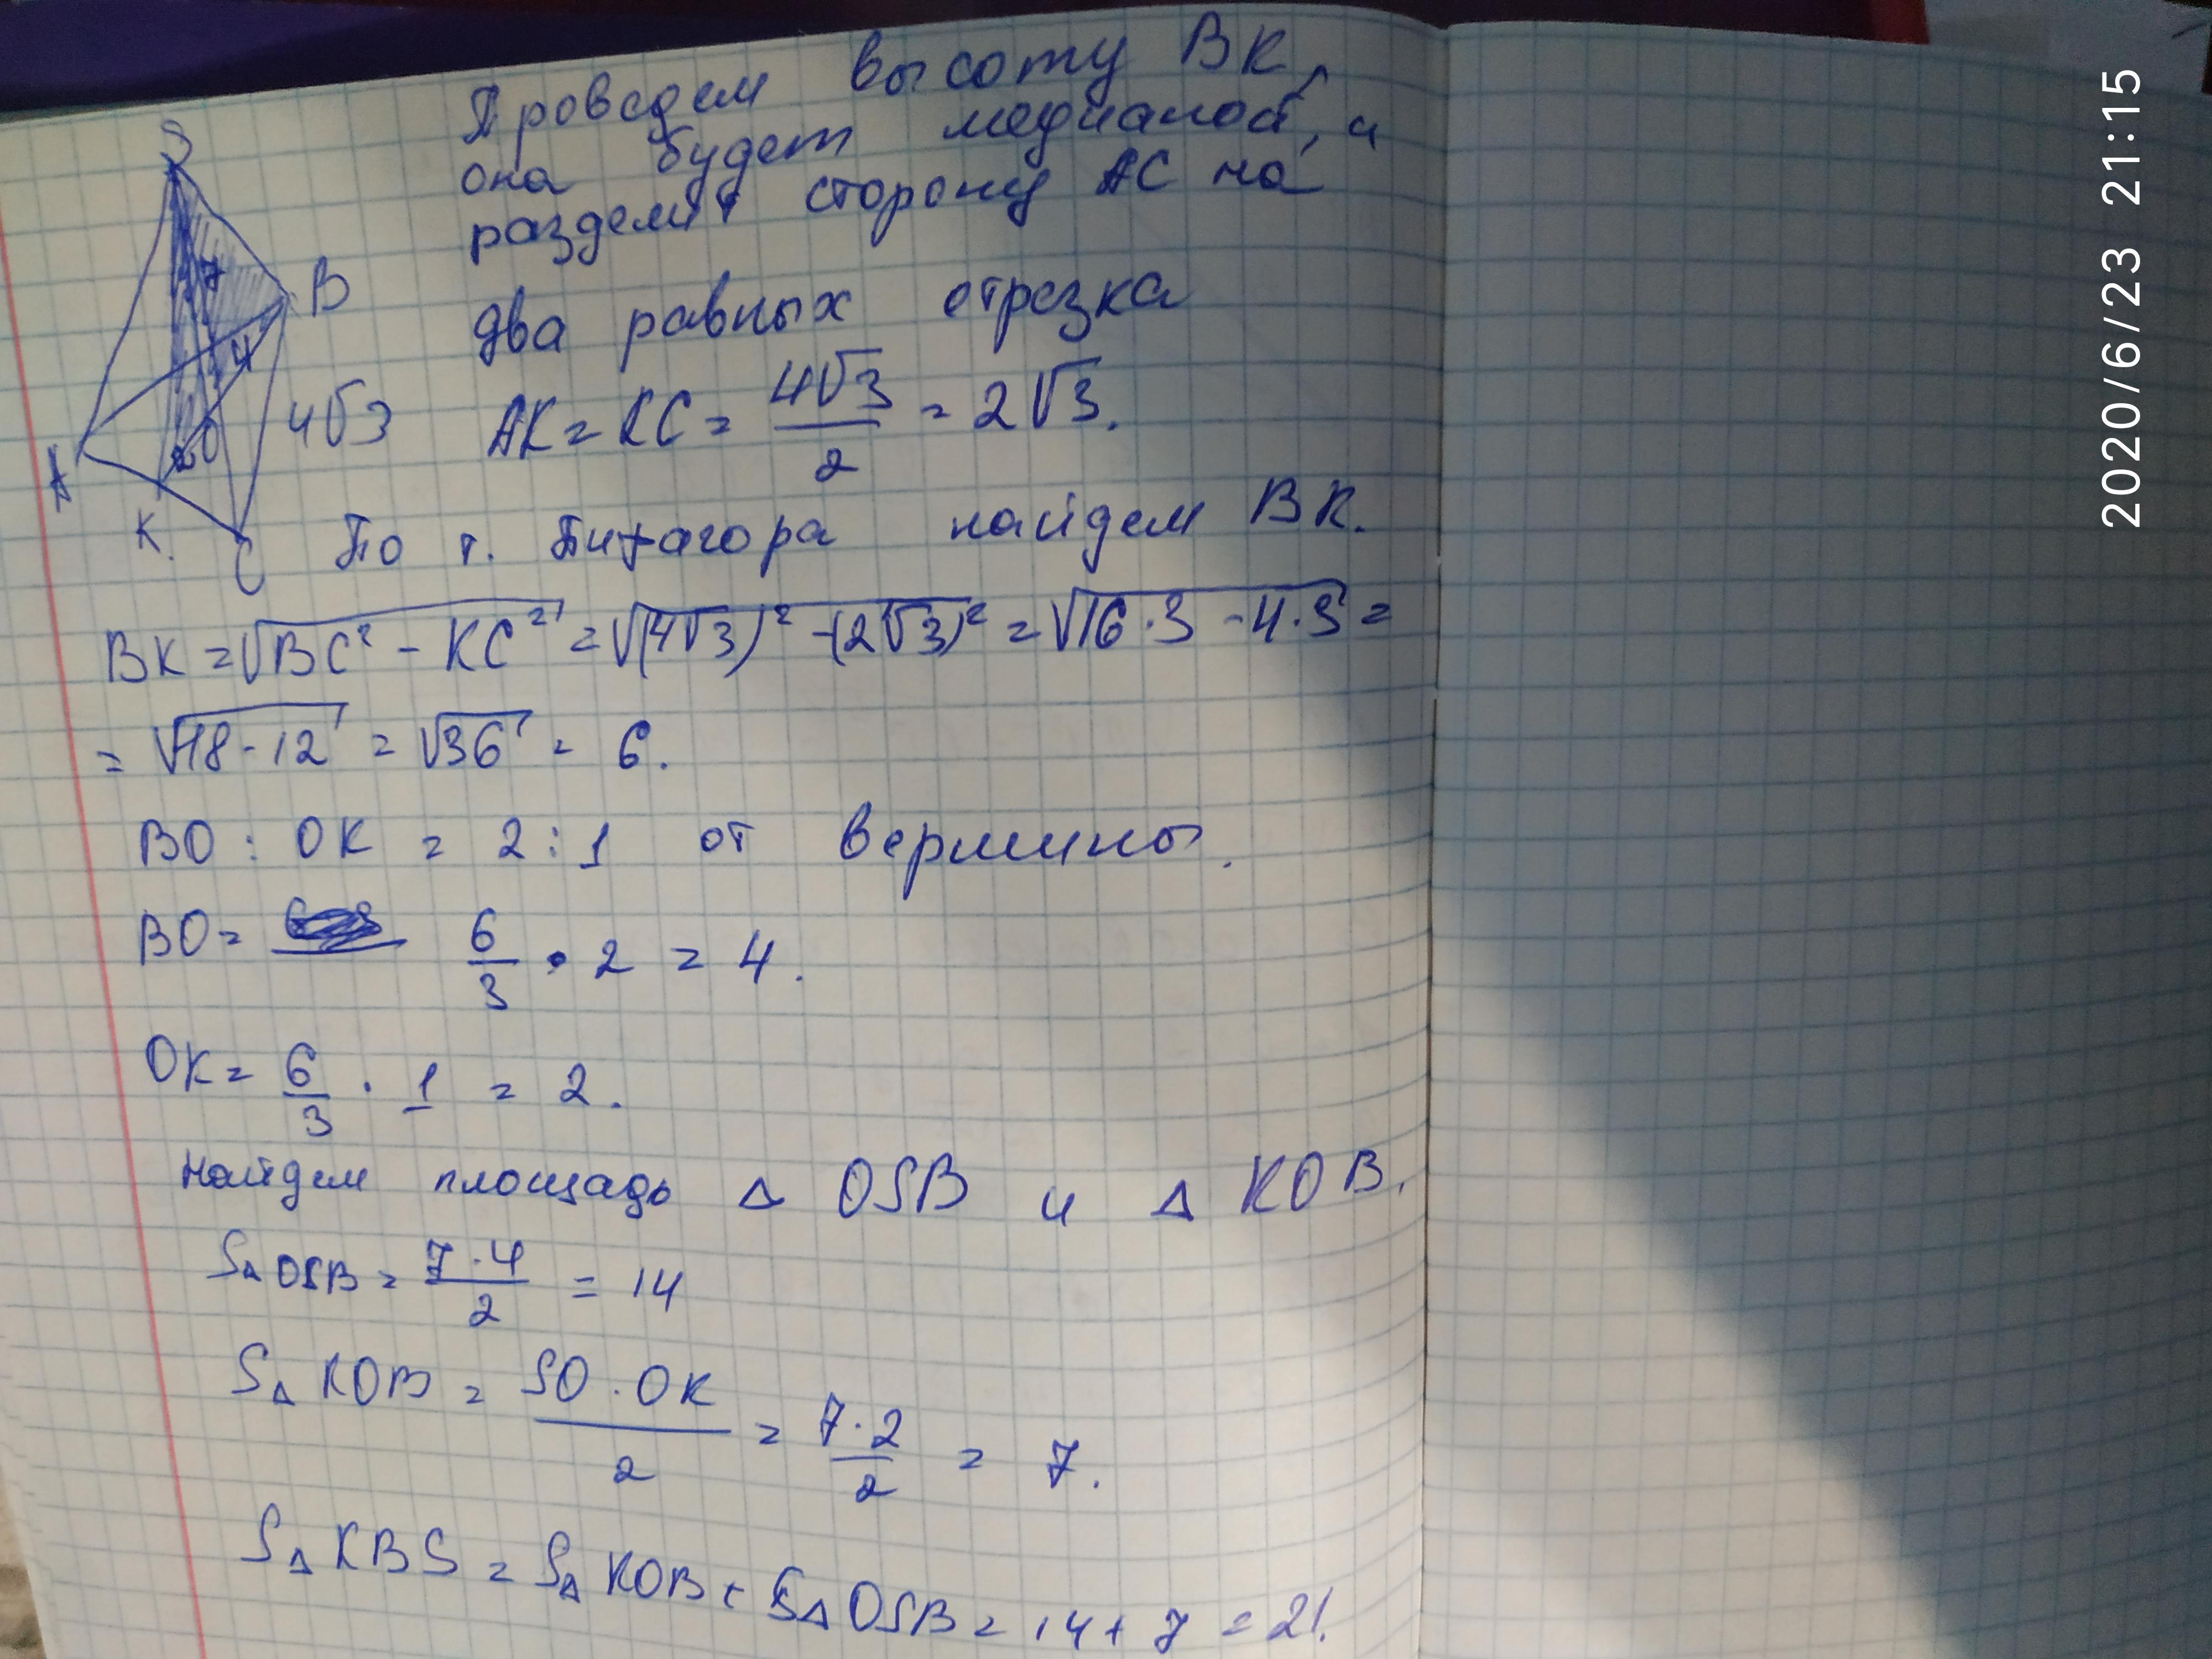 S
7
B
4
4√3
A
2
O
K.
C
Проведем высоту ВК,
она будет медианой, и
разделит сторону АС на
два равных отрезка
АК = КС = 4√3/2 = 2√3.
По т. Пифагора найдем ВК.
ВК = √(ВС² - КС²) = √((4√3)² - (2√3)²) = √(16·3 - 4·3) =
= √(48 - 12) = √36 = 6.
ВО : ОК = 2 : 1 от вершины.
ВО = 6/3 · 2 = 4.
ОК = 6/3 · 1 = 2.
Найдем площадь Δ OSB и Δ KOB.
SΔ OSB = 7·4/2 = 14
SΔ KOB = SO · OK/2 = 7·2/2 = 7.
SΔ KBS = SΔ KOB + SΔ OSB = 14 + 7 = 21.
2020/6/23 21:15